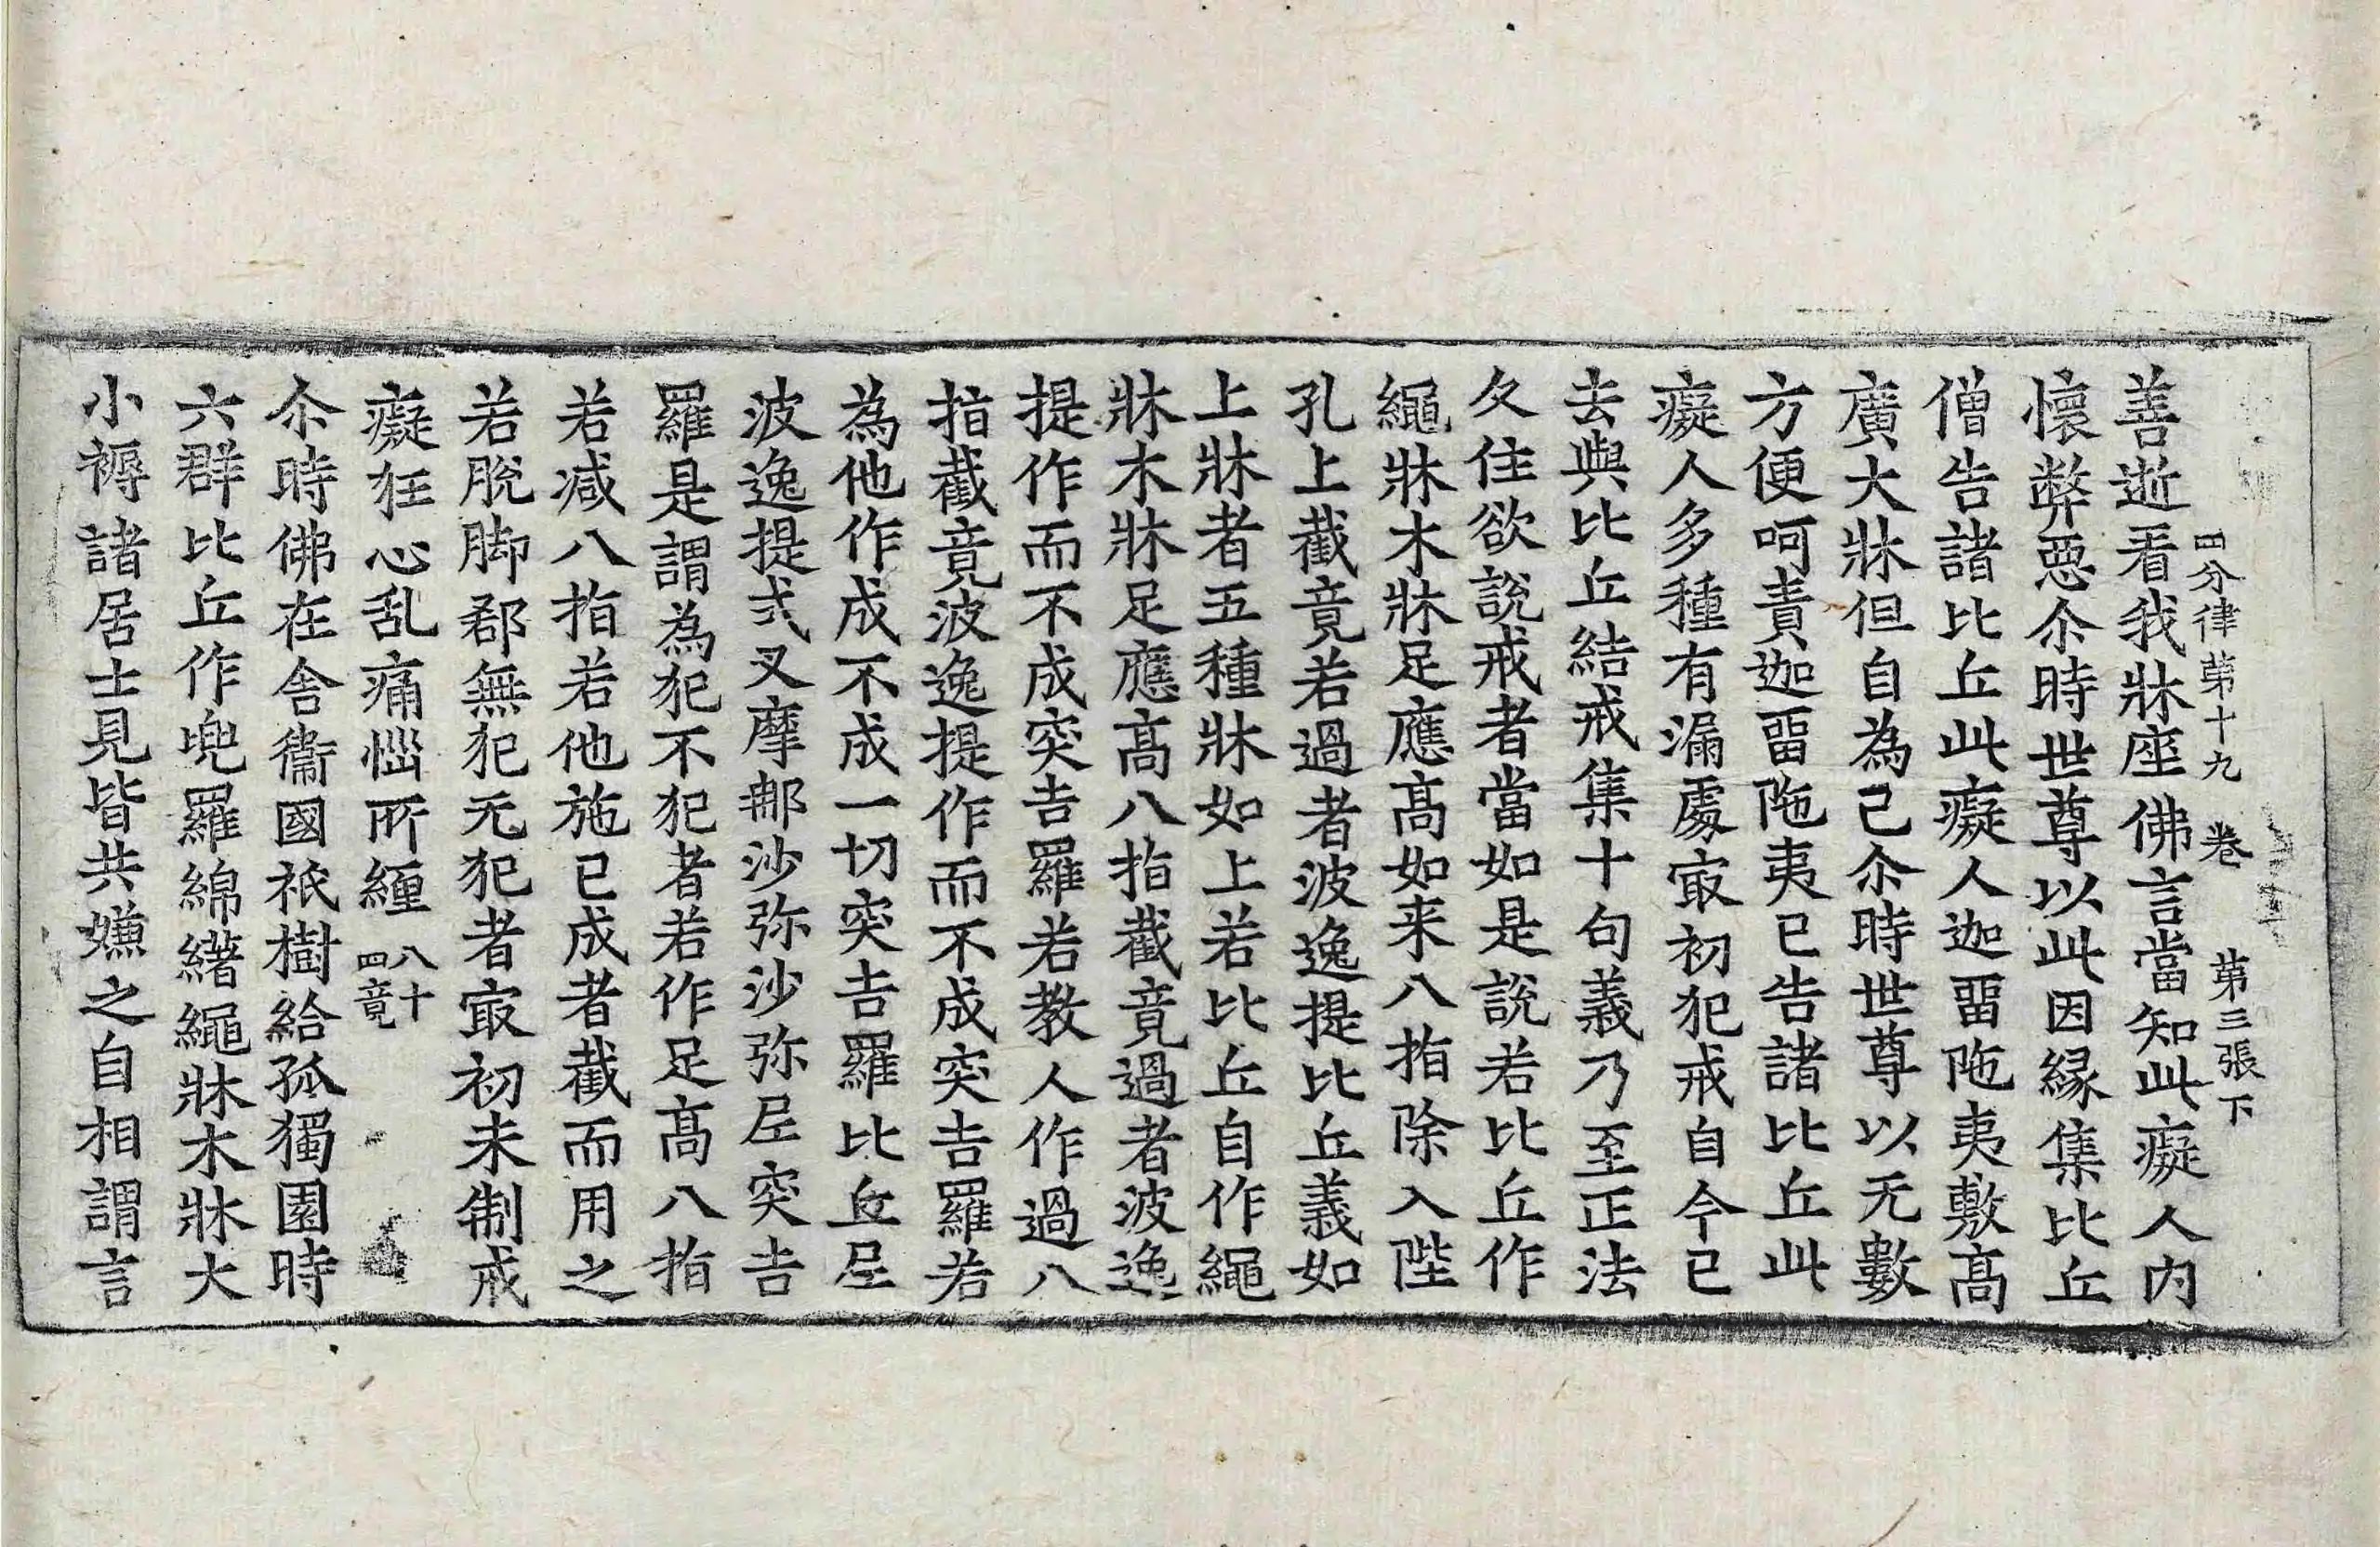 四分律苐十九 卷 苐三張下
善逝看我牀座佛言當知此癡人内
懷弊惡尒時世尊以此因縁集比丘
僧告諸比丘此癡人迦畱陁夷敷髙
廣大牀但自為己尒時世尊以无數
方便呵責迦畱陁夷已告諸比丘此
癡人多種有漏處㝡初犯戒自今已
去與比丘結戒集十句義乃至正法
久住欲說戒者當如是說若比丘作
繩牀木牀足應髙如来八指除入陛
孔上截竟若過者波逸提比丘義如
上牀者五種牀如上若比丘自作繩
牀木牀足應髙八指截竟過者波逸
提作而不成突吉羅若教人作過八
指截竟波逸提作而不成突吉羅若
為他作成不成一切突吉羅比丘尼
波逸提式叉摩那沙弥沙弥尼突吉
羅是謂為犯不犯者若作足髙八指
若減八指若他施已成者截而用之
若脫脚郄無犯无犯者㝡初未制戒
癡狂心乱痛惱所纏 八十四竟
尒時佛在舍衞國祇樹給孤獨園時
六群比丘作兜羅綿䋠繩牀木牀大
小褥諸居士見皆共嫌之自相謂言